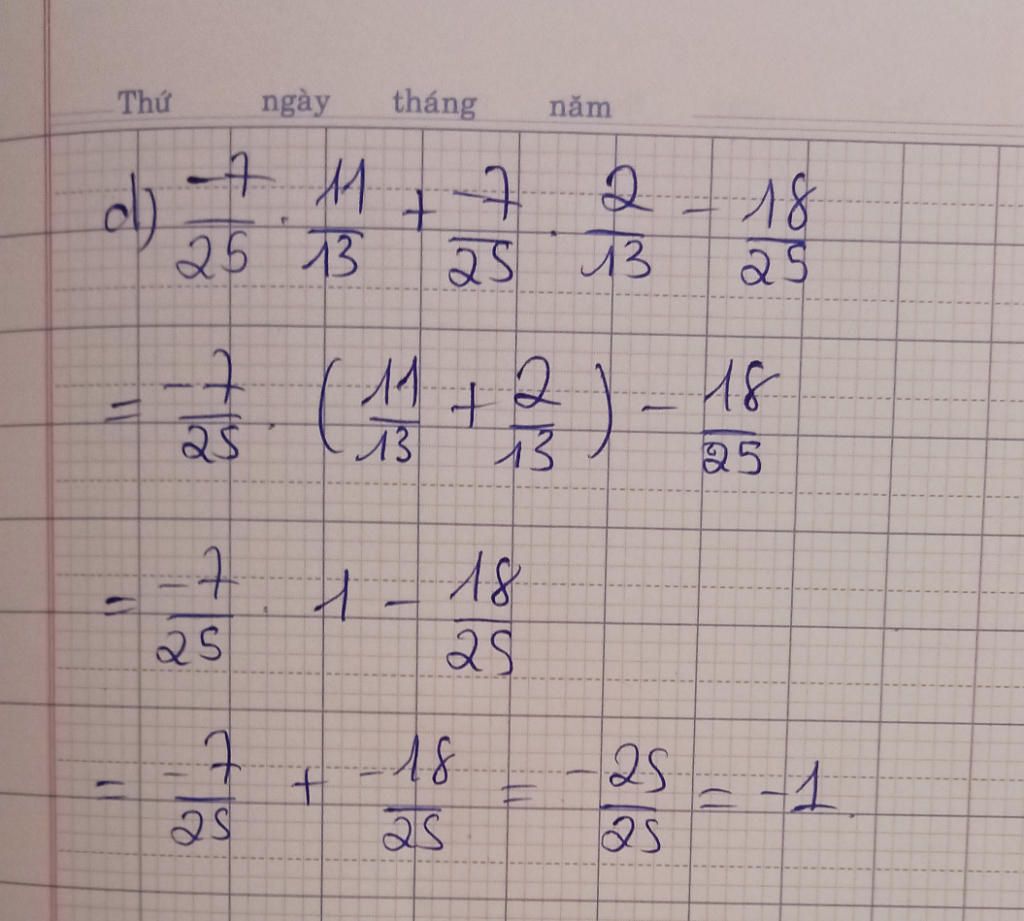 Thứ ngày tháng năm
d) -7/25 . 11/13 + -7/25 . 2/13 - 18/25
= -7/25 . (11/13 + 2/13) - 18/25
= -7/25 . 1 - 18/25
= -7/25 + -18/25 = -25/25 = -1